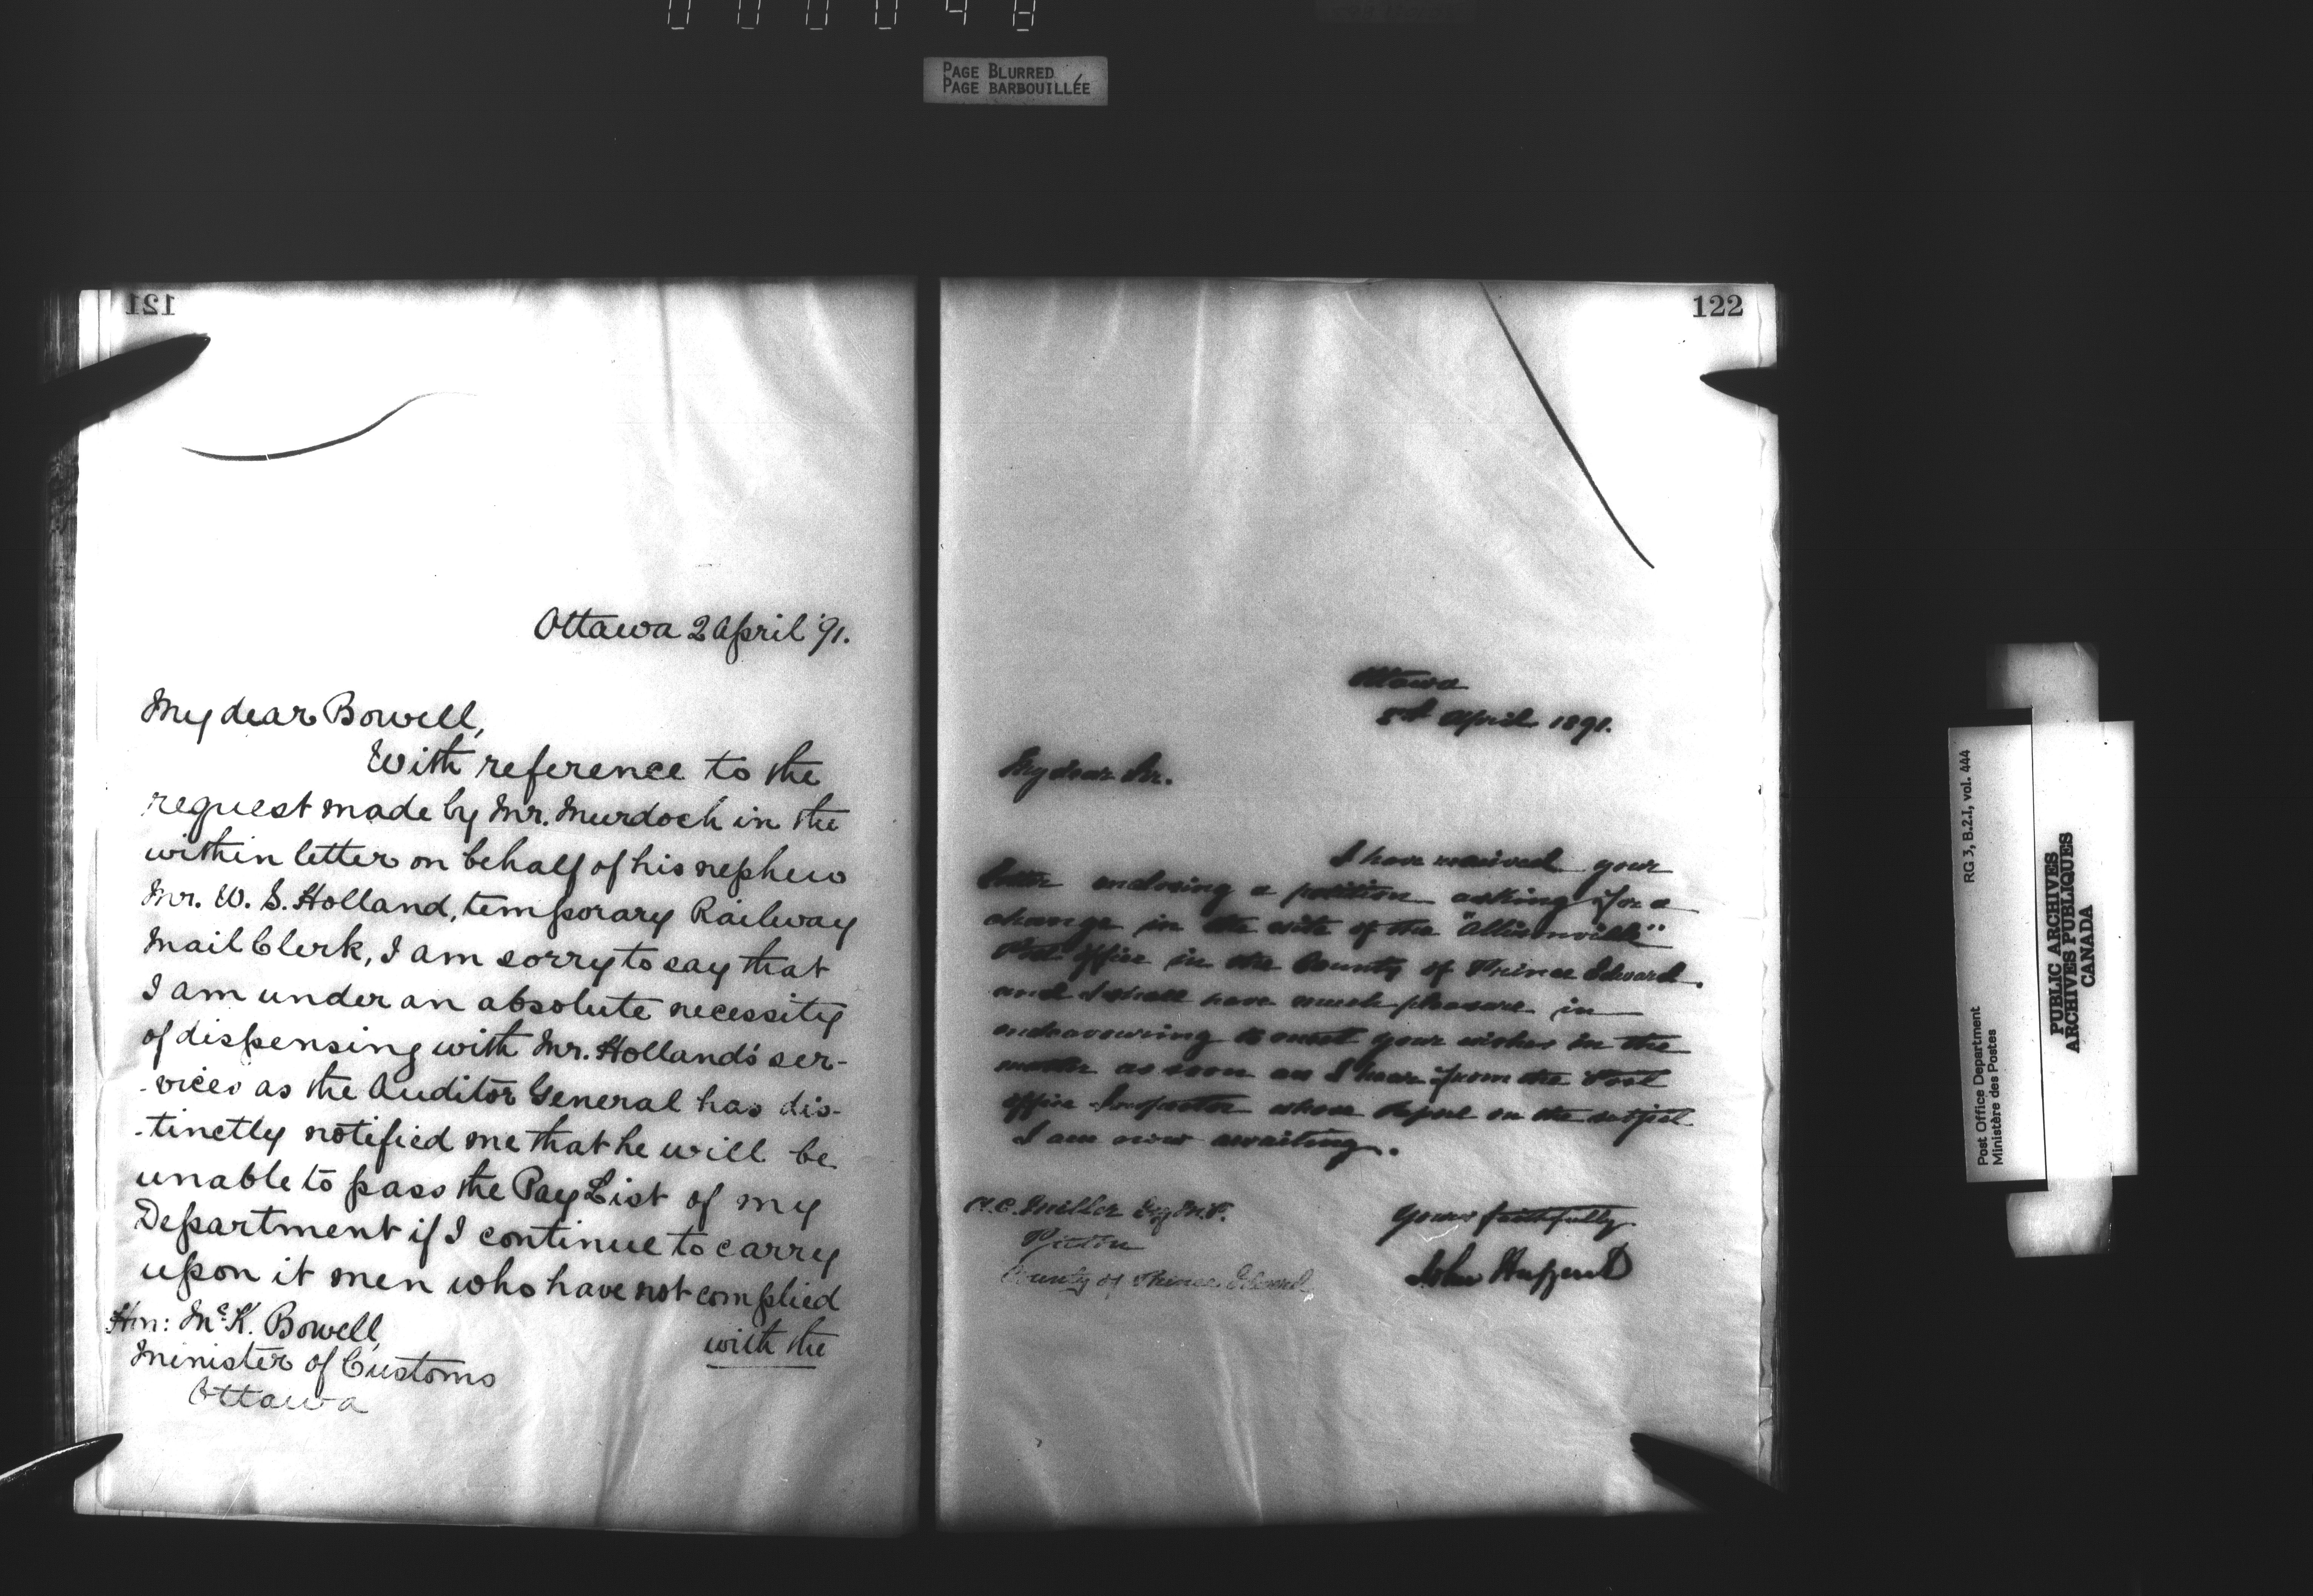 000048
PAGE BLURRED
PAGE BARBOUILLÉE
121
Ottawa 2 April '91.
My dear Bowell,
With reference to the
request made by Mr. Murdoch in the
within letter on behalf of his nephew
Mr. W. S. Holland, temporary Railway
Mail Clerk, I am sorry to say that
I am under an absolute necessity
of dispensing with Mr. Holland's ser-
-vices as the Auditor General has dis-
-tinctly notified me that he will be
unable to pass the Pay List of my
Department if I continue to carry
upon it men who have not complied
with the
Hon: McK. Bowell,
Minister of Customs
Ottawa
122
Ottawa
April 1891.
My dear Sir.
I have received your
letter enclosing a petition asking for a
change in the site of the "Allisonville"
Post Office in the County of Prince Edward.
and I shall have much pleasure in
endeavouring to meet your wishes in the
matter as soon as I hear from the Post
Office Inspector whose report on the subject
I am now awaiting.
Yours faithfully
John Haggart
Miller Esq M.P.
Picton
County of Prince Edward
RG 3, B.2.1, vol. 444
Post Office Department
Ministère des Postes
PUBLIC ARCHIVES
ARCHIVES PUBLIQUES
CANADA